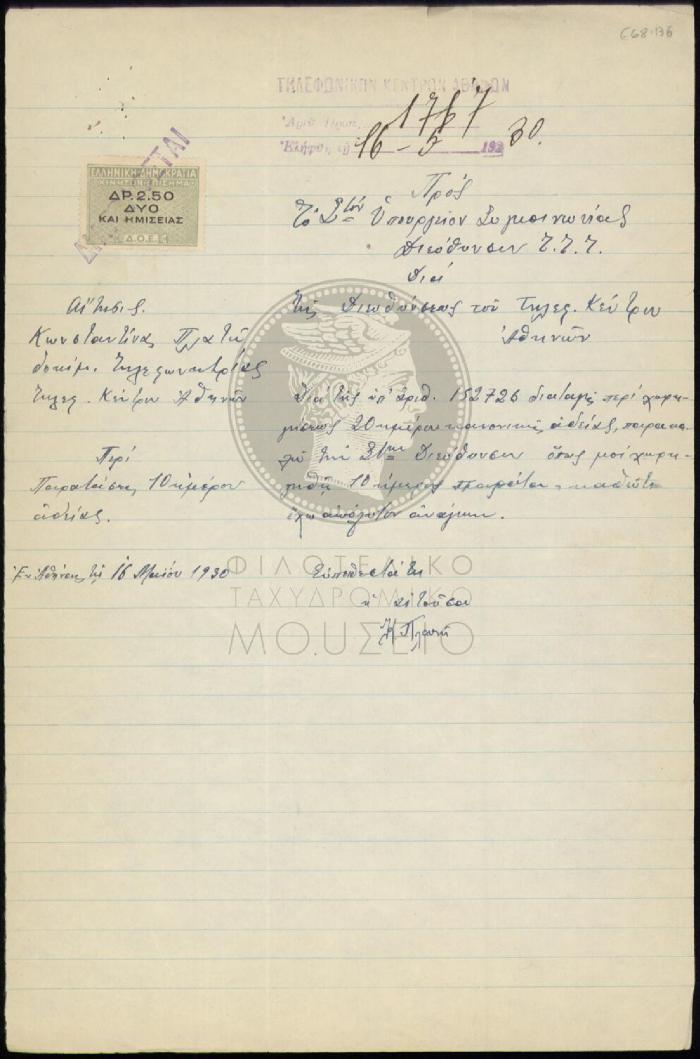 668.136
ΤΗΛΕΦΩΝΙΚΟΝ ΚΕΝΤΡΟΝ ΑΘΗΝΩΝ
Ἀριθ. Πρωτ. 1767
Ἐλήφθη τῇ 16-5 1930.
ΕΛΛΗΝΙΚΗ ΔΗΜΟΚΡΑΤΙΑ
ΚΙΝΗΤΟΝ ΕΠΙΣΗΜΑ
ΔΡ. 2.50
ΔΥΟ
ΚΑΙ ΗΜΙΣΕΙΑΣ
Δ.Ο.Ε.
Πρὸς
Τὸ Στὸν Ὑπουργεῖον Συγκοινωνίας
Διεύθυνσιν Τ.Τ.Τ.
Διὰ
τῆς Διευθύνσεως τοῦ Τηλεφ. Κέντρου
Ἀθηνῶν
Αἴτησις
Κωνσταντίνας Πλατῆ
δοκίμ. Τηλεφωνητρίας
Τηλεφ. Κέντρου Ἀθηνῶν
Περὶ
Παρατάσεως 10ημέρου
ἀδείας.
Διὰ τῆς ὑπ' ἀριθ. 152726 διαταγῆς περὶ χορη-
γήσεως 20ημέρου κανονικῆς ἀδείας, παρακα-
λῶ τὴν Σтὴν Διεύθυνσιν ὅπως μοὶ χορη-
γηθῇ 10ήμερος παράτασις καθότι
ἔχω ἀπόλυτον ἀνάγκην.
Ἐν Ἀθήναις τῇ 16 Μαΐου 1930
Εὐπειθεστάτη
ἡ αἰτοῦσα
Κ. Πλατῆ
ΦΙΛΟΤΕΛΙΚΟ
ΤΑΧΥΔΡΟΜΙΚΟ
ΜΟΥΣΕΙΟ